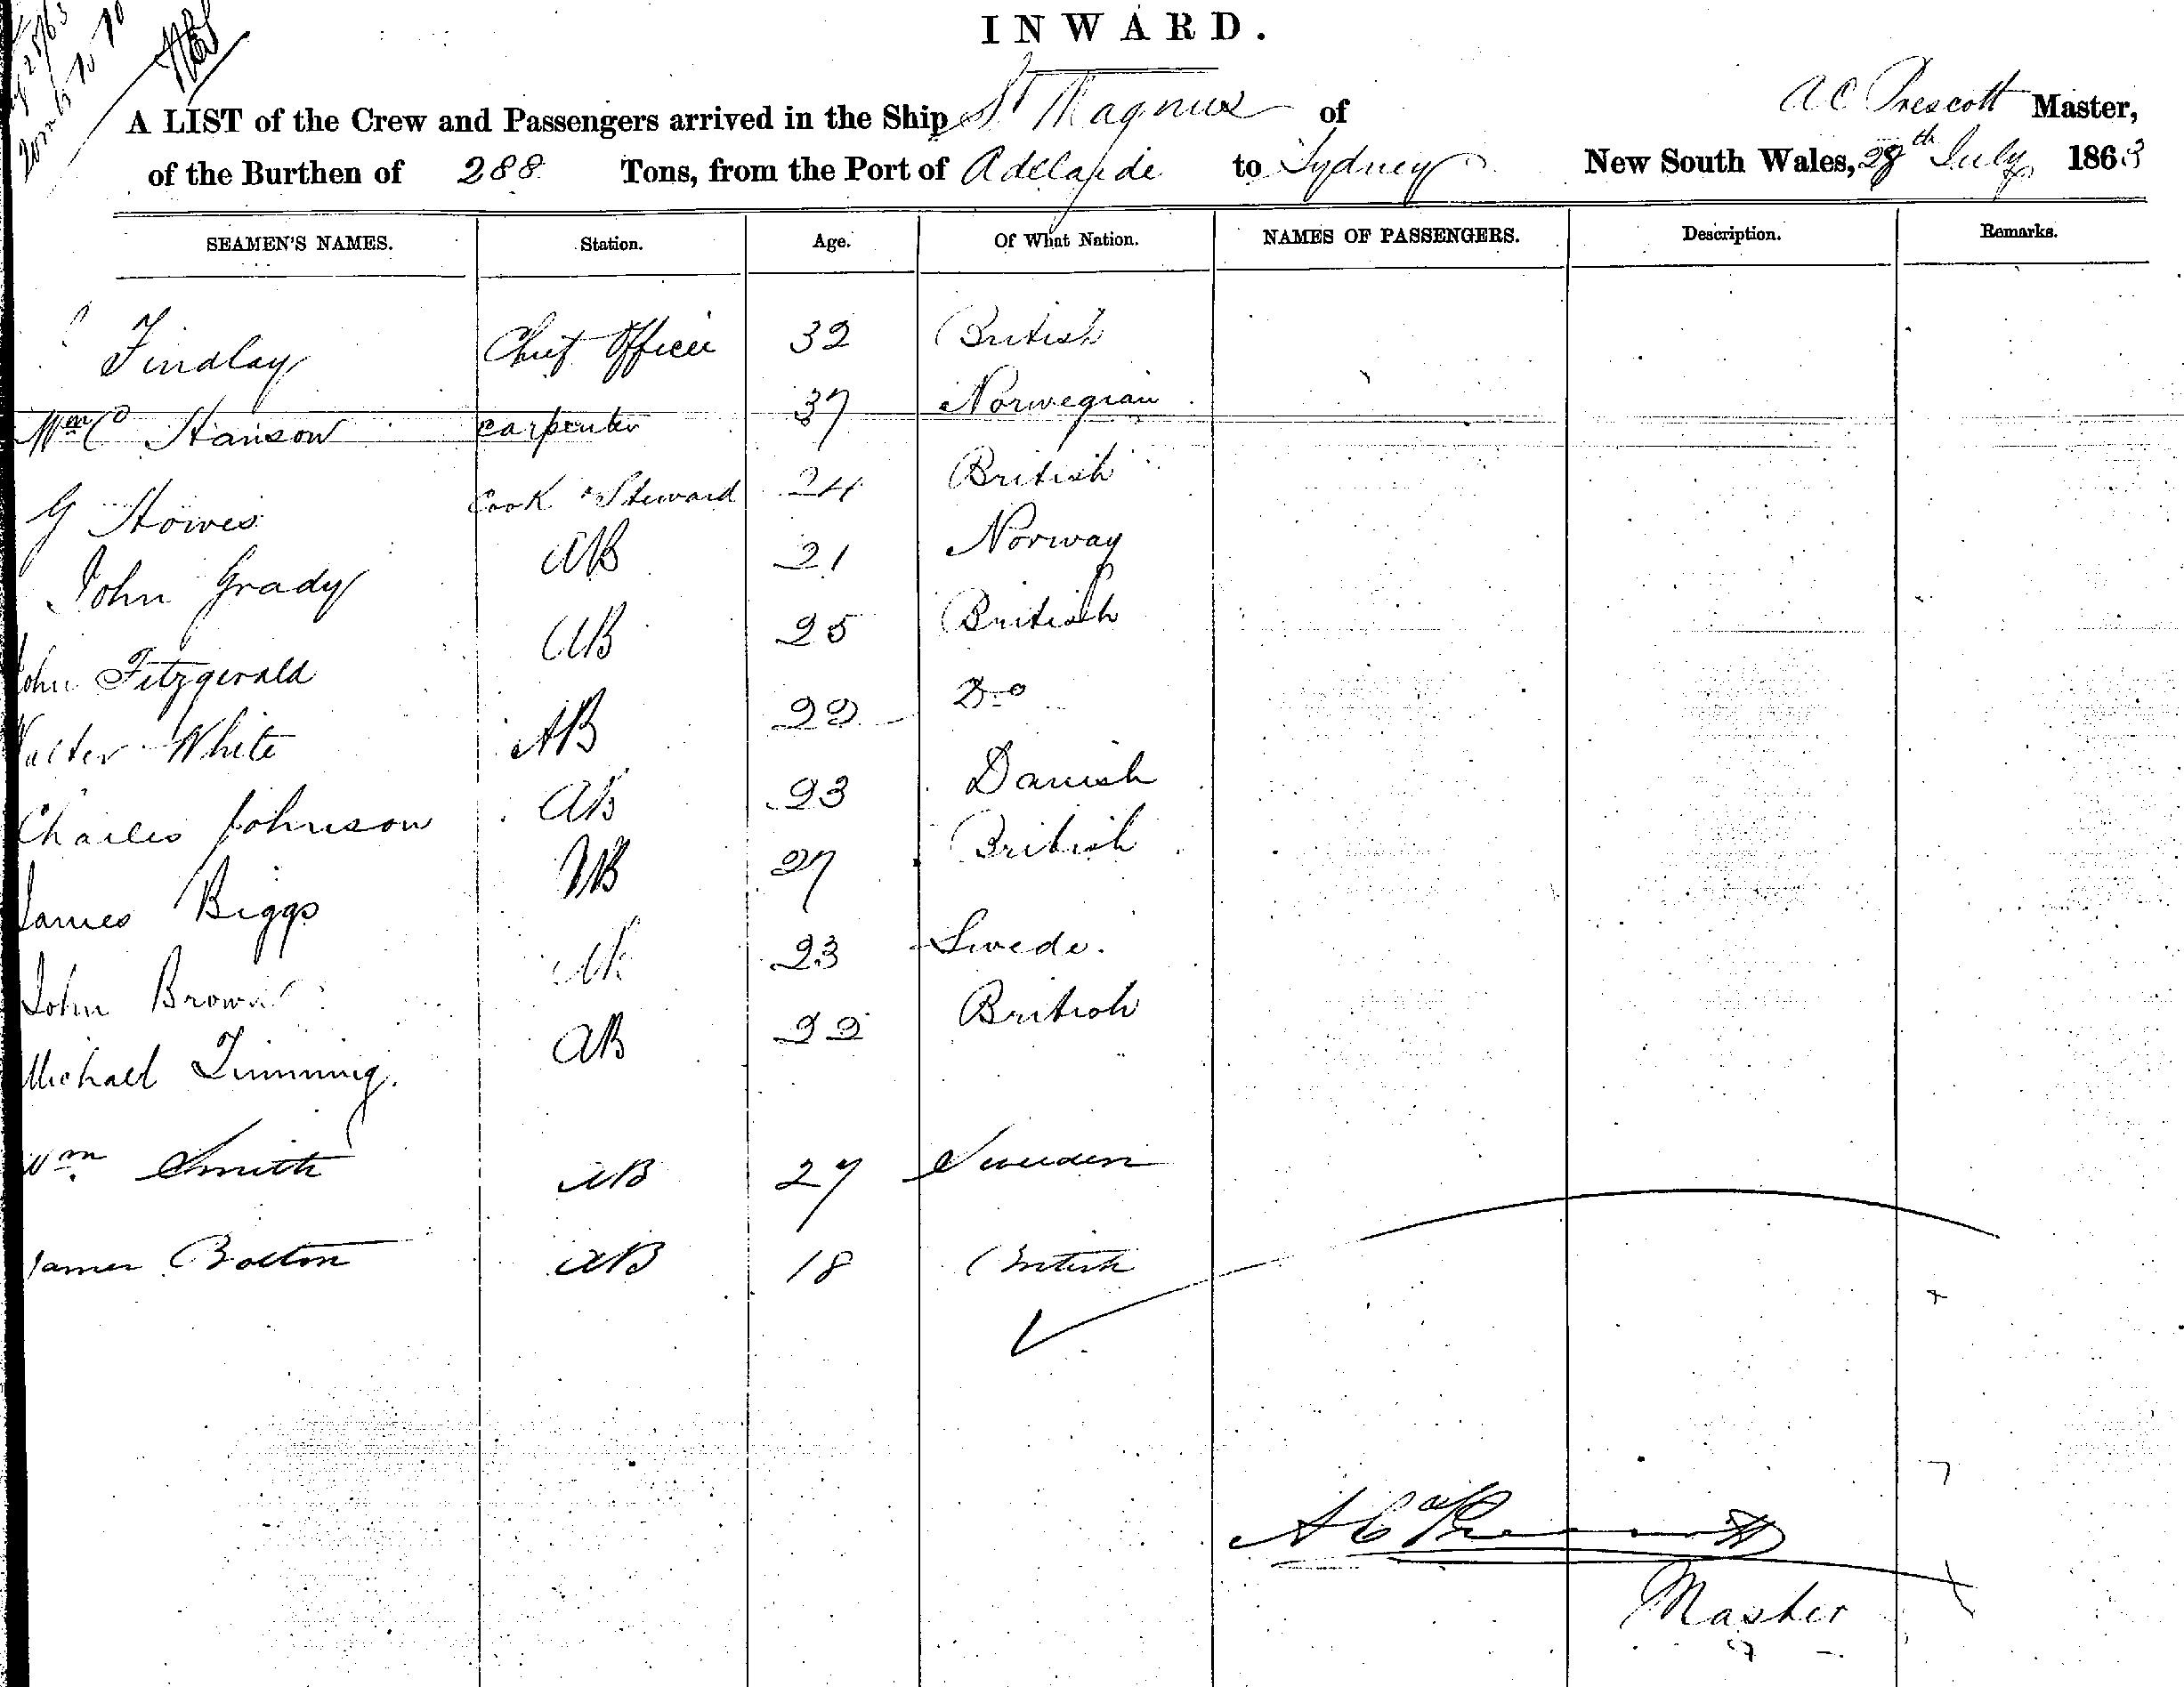 INWARD.
A LIST of the Crew and Passengers arrived in the Ship St Magnus of A C Prescott Master,
of the Burthen of 288 Tons, from the Port of Adelaide to Sydney New South Wales, 28th July 1863
SEAMEN'S NAMES. Station. Age. Of What Nation. NAMES OF PASSENGERS. Description. Remarks.
Findlay Chief Officer 32 British
Wm C Hanson carpenter 37 Norwegian
G Howes Cook & Steward 24 British
John Grady AB 21 Norway
John Fitzgerald AB 25 British
Walter White AB 22 Do
Charles Johnson AB 23 Danish
James Biggs AB 27 British
John Brown AB 23 Swede.
Michael Timming. AB 22 British
Wm Smith AB 27 Sweden
James Bolton AB 18 British
A C Prescott
Master